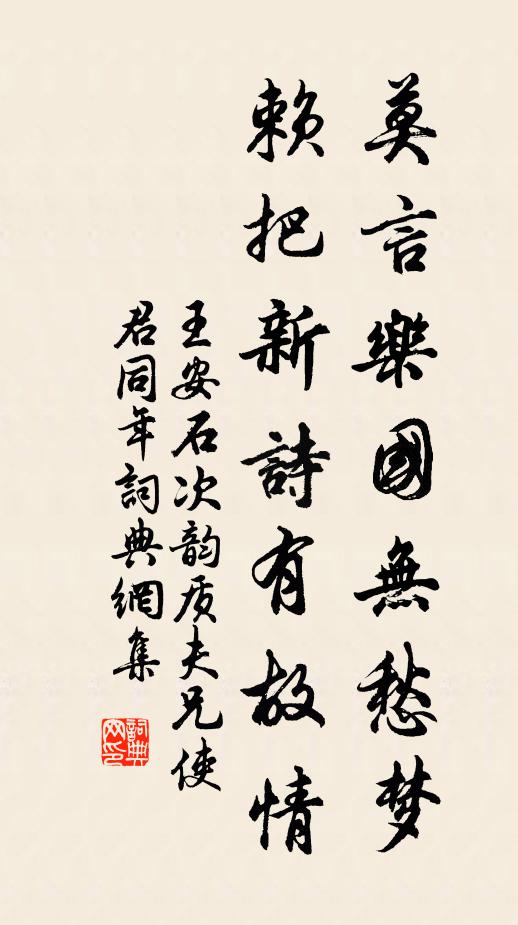 莫言樂國無愁梦
賴把新詩有故情
王安石次韵质夫兄使
君同年詞典網集
詞典
网印